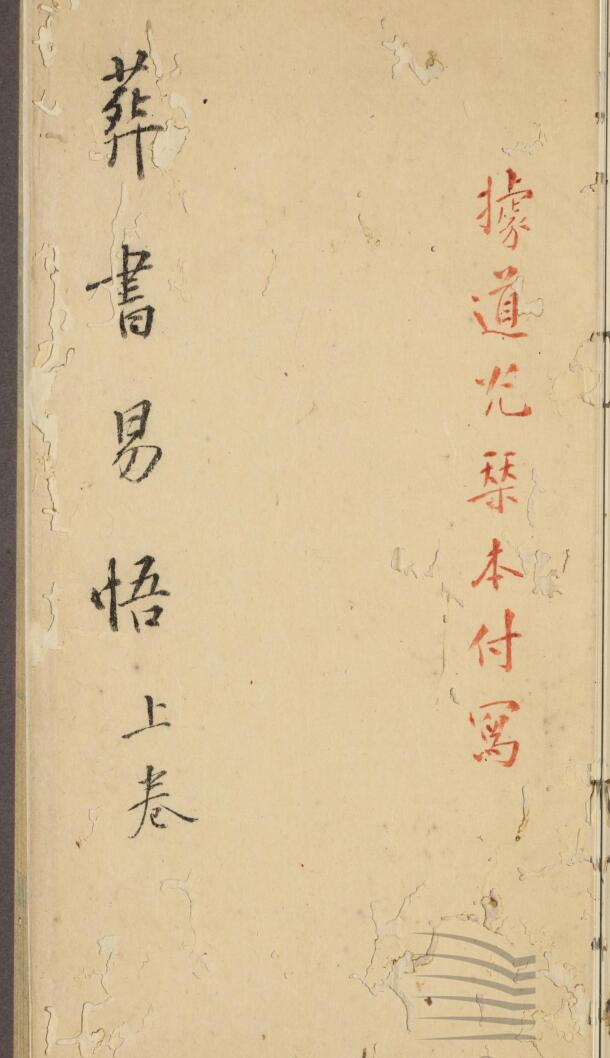 據道光栞本付寫
葬書易悟上卷